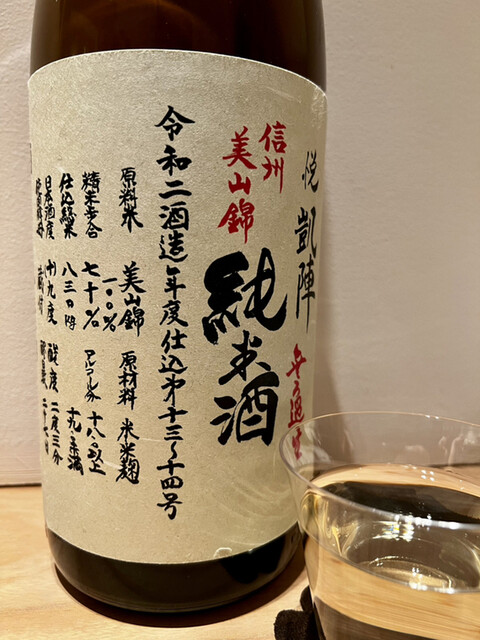 悦凱陣
無ろ過生
信州
美山錦
純米酒
令和二酒造年度仕込第十三〜十四号
原料米 美山錦 一〇〇% 原材料 米 米麹
精米歩合 七十% アルコール分 十八度以上 十九度未満
仕込総米 八三〇kg
日本酒度 十九度 酸度 二度三分
蔵付